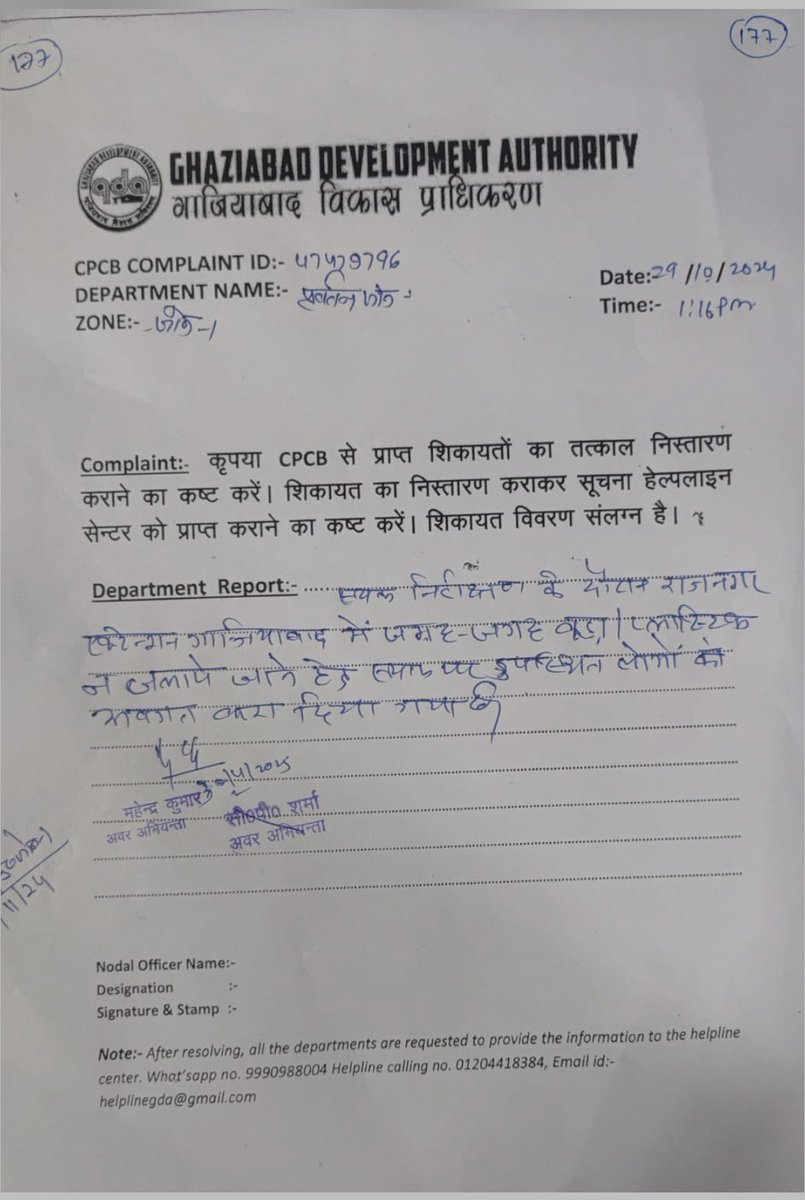 177
177
GHAZIABAD DEVELOPMENT AUTHORITY
गाजियाबाद विकास प्राधिकरण
CPCB COMPLAINT ID:-
DEPARTMENT NAME:- प्रवर्तन जोन-
ZONE:- जोन-1
Date: 29/10/2024
Time:- 1:16 pm
Complaint:- कृपया CPCB से प्राप्त शिकायतों का तत्काल निस्तारण
कराने का कष्ट करें। शिकायत का निस्तारण कराकर सूचना हेल्पलाइन
सेन्टर को प्राप्त कराने का कष्ट करें। शिकायत विवरण संलग्न है।
Department Report:- स्थल निरीक्षण के दौरान राजनगर
एक्टेन्शन गाजियाबाद में जगह-जगह कूडा/प्लास्टिक
न जलाये जाने हेतु स्थल पर उपस्थित लोगों को
अवगत करा दिया गया है
महेन्द्र कुमार
अवर अभियन्ता
सी०पी० शर्मा
अवर अभियन्ता
Nodal Officer Name:-
Designation :-
Signature & Stamp :-
Note:- After resolving, all the departments are requested to provide the information to the helpline
center. What'sapp no. 9990988004 Helpline calling no. 01204418384, Email id:-
helplinegda@gmail.com